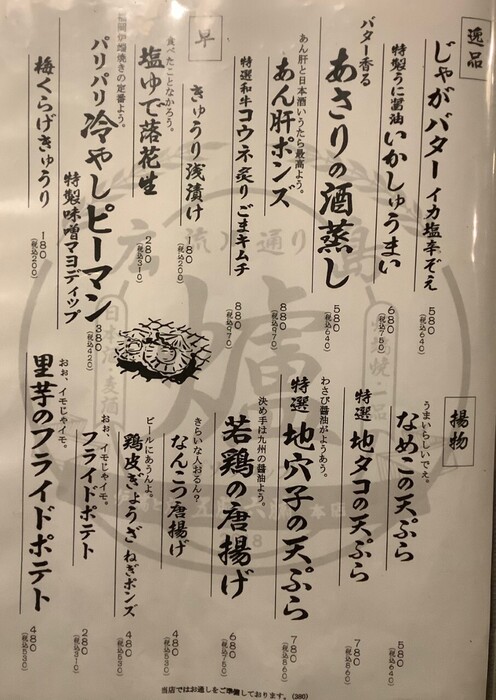 逸品
じゃがバター イカ塩辛ぞえ
580
(税込640)
特製うに醤油 いかしゅうまい
680
(税込750)
バター香る
あさりの酒蒸し
580
(税込640)
あん肝と日本酒いうたら最高よう。
あん肝ポンズ
880
(税込970)
特選和牛コウネ炙り ごまキムチ
880
(税込970)
早
きゅうり浅漬け
180
(税込200)
食べたことなかろう。
塩ゆで落花生
280
(税込310)
福岡炉端焼きの定番よう。
パリパリ 冷やしピーマン
特製味噌マヨディップ
380
(税込420)
梅くらげきゅうり
180
(税込200)
揚物
うまいらしいでぇ。
なめこの天ぷら
580
(税込640)
特選 地タコの天ぷら
780
(税込860)
わさび醤油がようあう。
特選 地穴子の天ぷら
780
(税込860)
決め手は九州の醤油よう
若鶏の唐揚げ
680
(税込750)
きらいな人おるん?
なんこつ唐揚げ
480
(税込530)
ビールにあうんよ。
鶏皮ぎょうざ ねぎポンズ
480
(税込530)
おお、イモじゃイモ。
フライドポテト
280
(税込310)
おお、イモじゃイモ。
里芋のフライドポテト
480
(税込530)
当店ではお通しをご準備しております。(380)